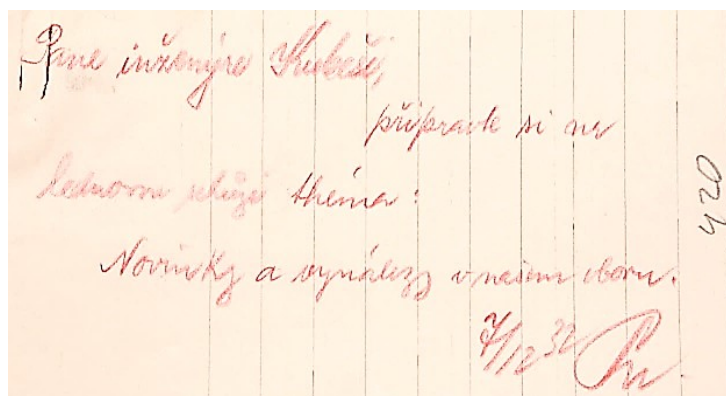 Pane inženýre Kubeši,
připravte si na
lednovou schůzi théma:
Novinky a vynálezy v našem oboru.
7/12 32
420